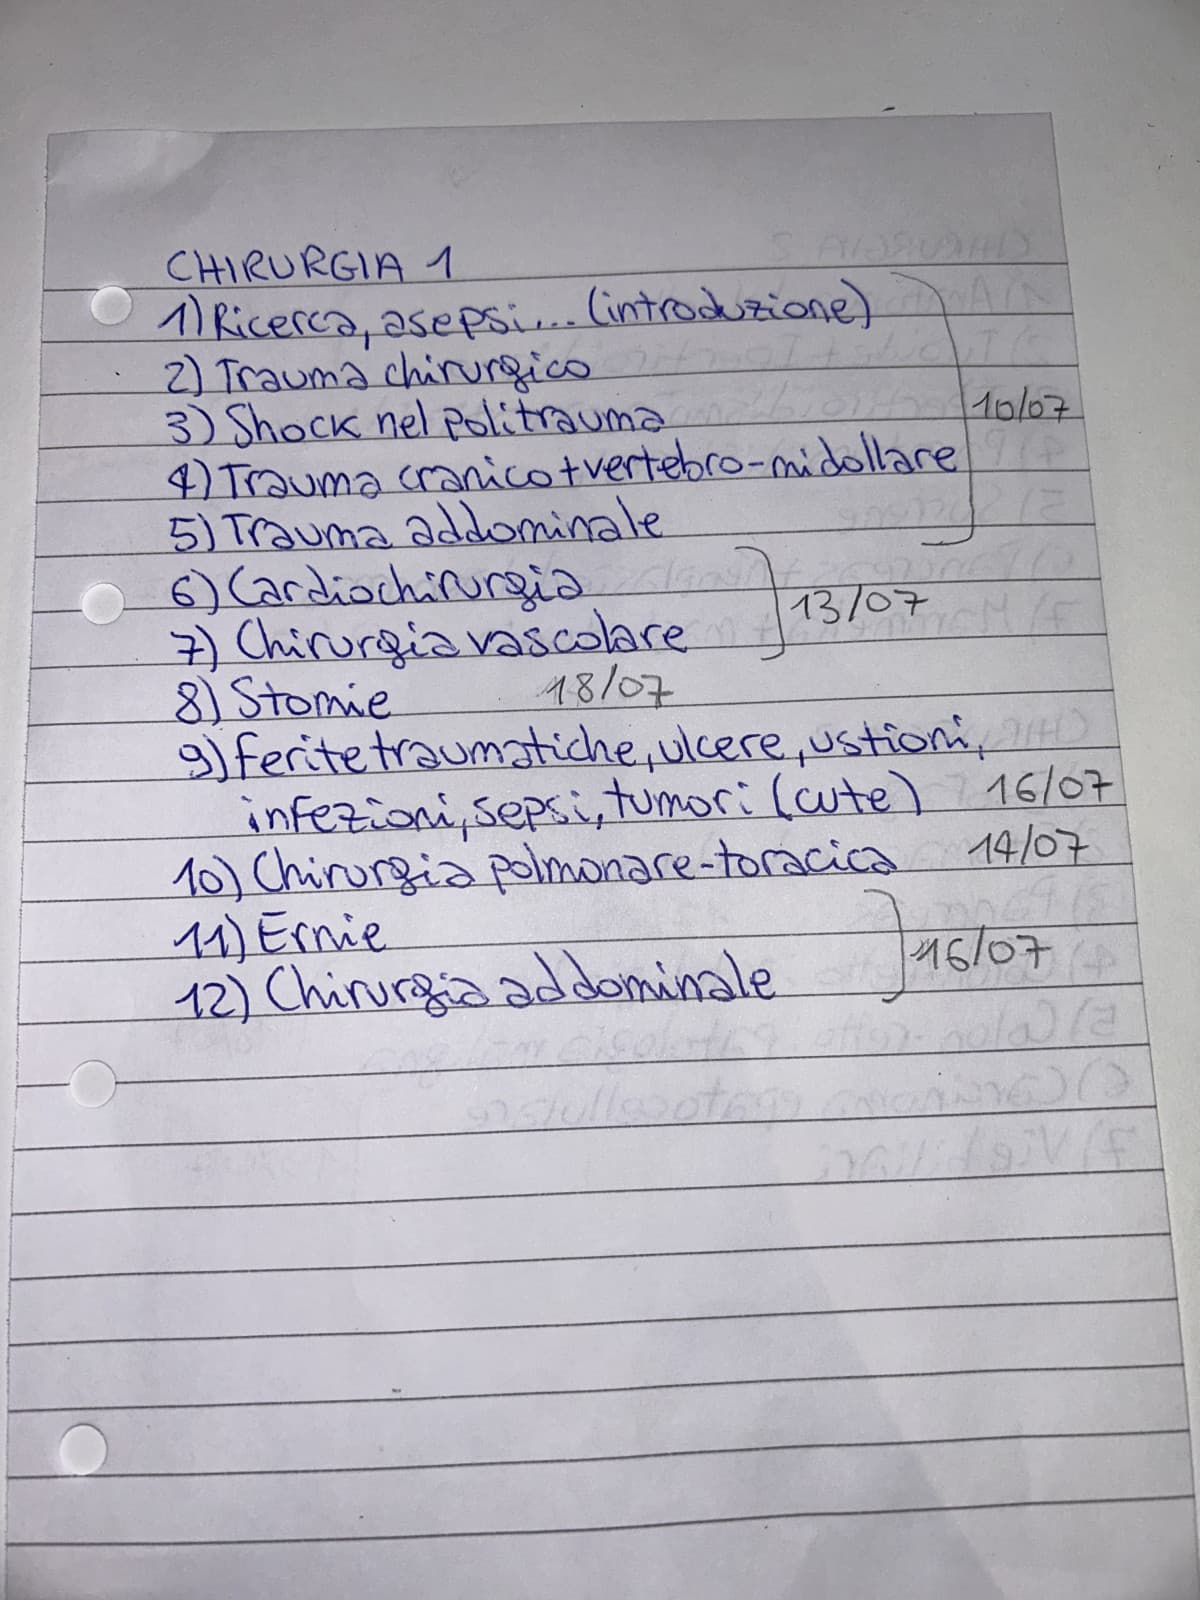 CHIRURGIA 1
1) Ricerca, asepsi... (introduzione)
2) Trauma chirurgico
3) Shock nel politrauma
10/07
4) Trauma cranico + vertebro-midollare
5) Trauma addominale
6) Cardiochirurgia
13/07
7) Chirurgia vascolare
8) Stomie 18/07
9) Ferite traumatiche, ulcere, ustioni,
infezioni, sepsi, tumori (cute) 16/07
10) Chirurgia polmonare-toracica 14/07
11) Ernie
16/07
12) Chirurgia addominale